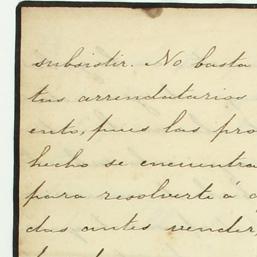 subsistir. No basta
tus arrendatarios
ento, pues las pro
hecho se encuentra
para resolverte á
das antes vender,